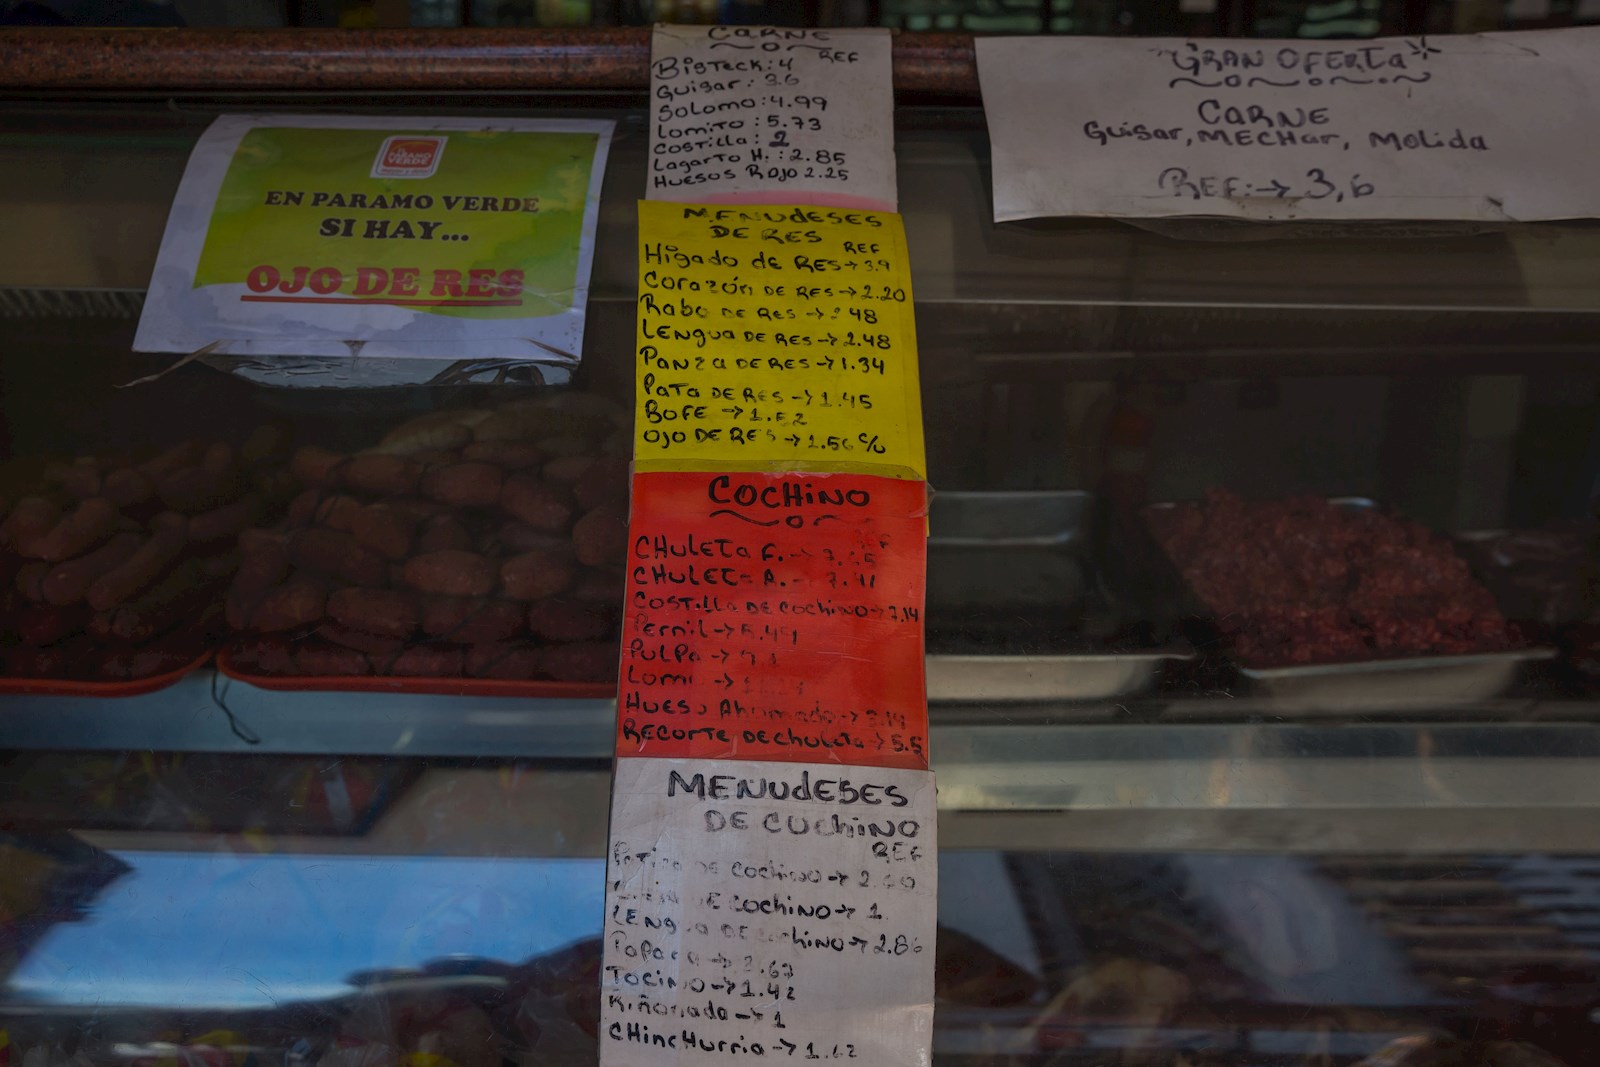 PARAMO
VERDE
EN PARAMO VERDE
SI HAY...
OJO DE RES
CARNE
REF
BISTECK: 4
Guisar: 3.6
Solomo: 4.99
Lomito: 5.73
Costilla: 2
Lagarto H.: 2.85
Huesos Rojo 2.25
MENUdESES
DE RES
REF
Higado de RES→ 3.9
Corazón DE RES→2.20
Rabo DE RES → 48
LENgua DE RES→2.48
Panza DE RES→1.34
PaTa DE RES→1.45
BOFE →1.
OJO DE RES→1.56 c/u
COCHINO
REF
CHULETa F.→
CHULETa A.→ 7.41
COSTilla DE COCHINO→
Pernil→
PULPa→
Lomo →
HUESO Ahumado→
RECORTE DE CHULETa→5.5
MENUdESES
DE COCHINO
REF
DE COCHINO→ 2.
DE COCHINO→ 1
LENgua DE COCHINO→2.86
Papada→ .67
TOCINO→1.42
Riñonada→1
CHINCHurria→
GRAN OFERTa
CARNE
Guisar, MECHar, Molida
REF:→ 3,6